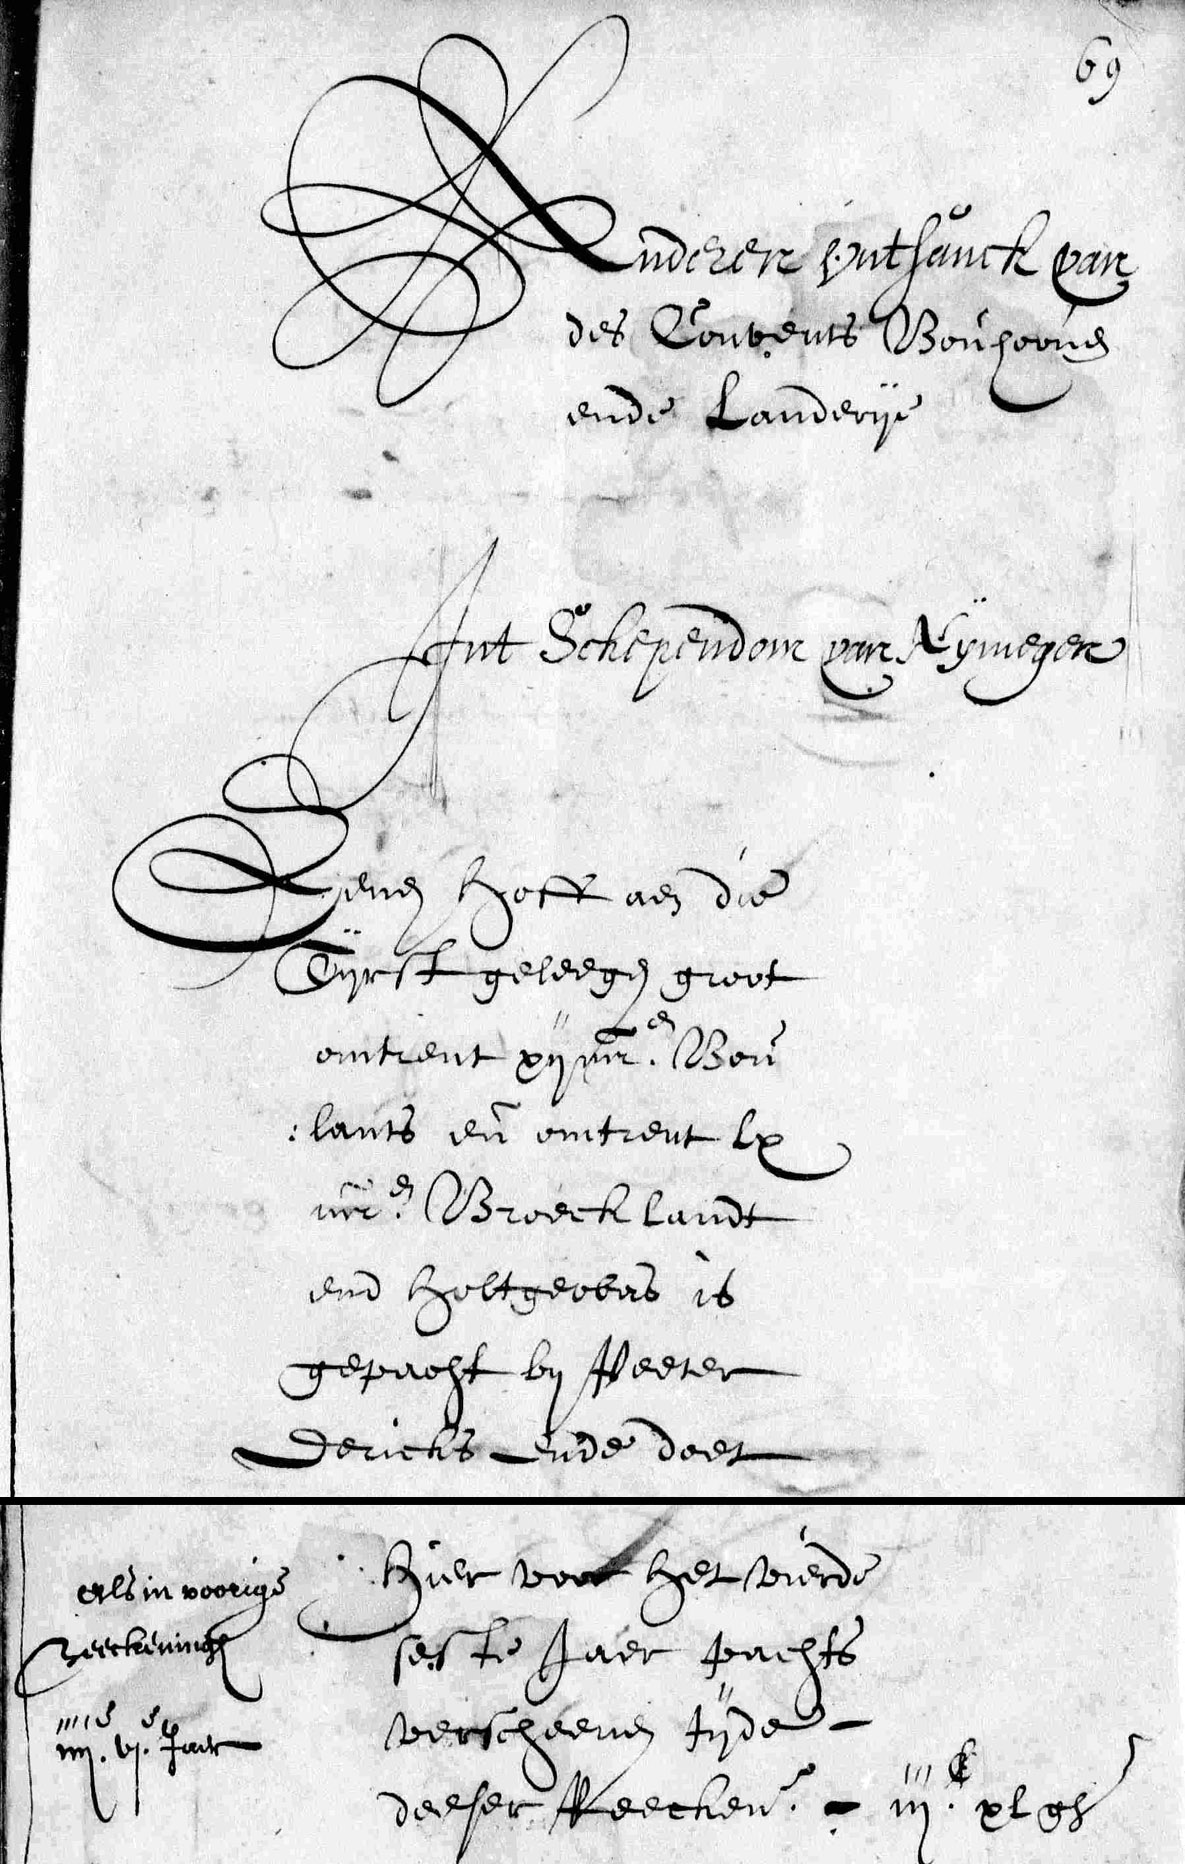 69
Anderen ontfanck van
des Convents Bouhoven
ende Landerije
Int Schependom van Nymegen
Eenen Hoff aen die
Tyrst geleegen groot
omtrent xij mr.en Bou
:lants en̄ omtrent lx
mr.en Broecklandt
end Holtgewas is
gepacht by Peeter
Dericks ende doet
Als in voorige
Reeckeninge
iiije. vje. Jaer
Hier voor het vierde
seste Jaer pachts
verscheenen tyde
deeser Reecken. - iijC xl gl